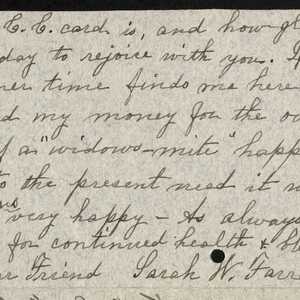 C. C. card is, and how gr
day to rejoice with you. I
ner time finds me here
d my money for the ou
f a "widows-mite" happ
to the present need it w
us very happy - As always
for continued health & bl
r Friend Sarah W. Farr